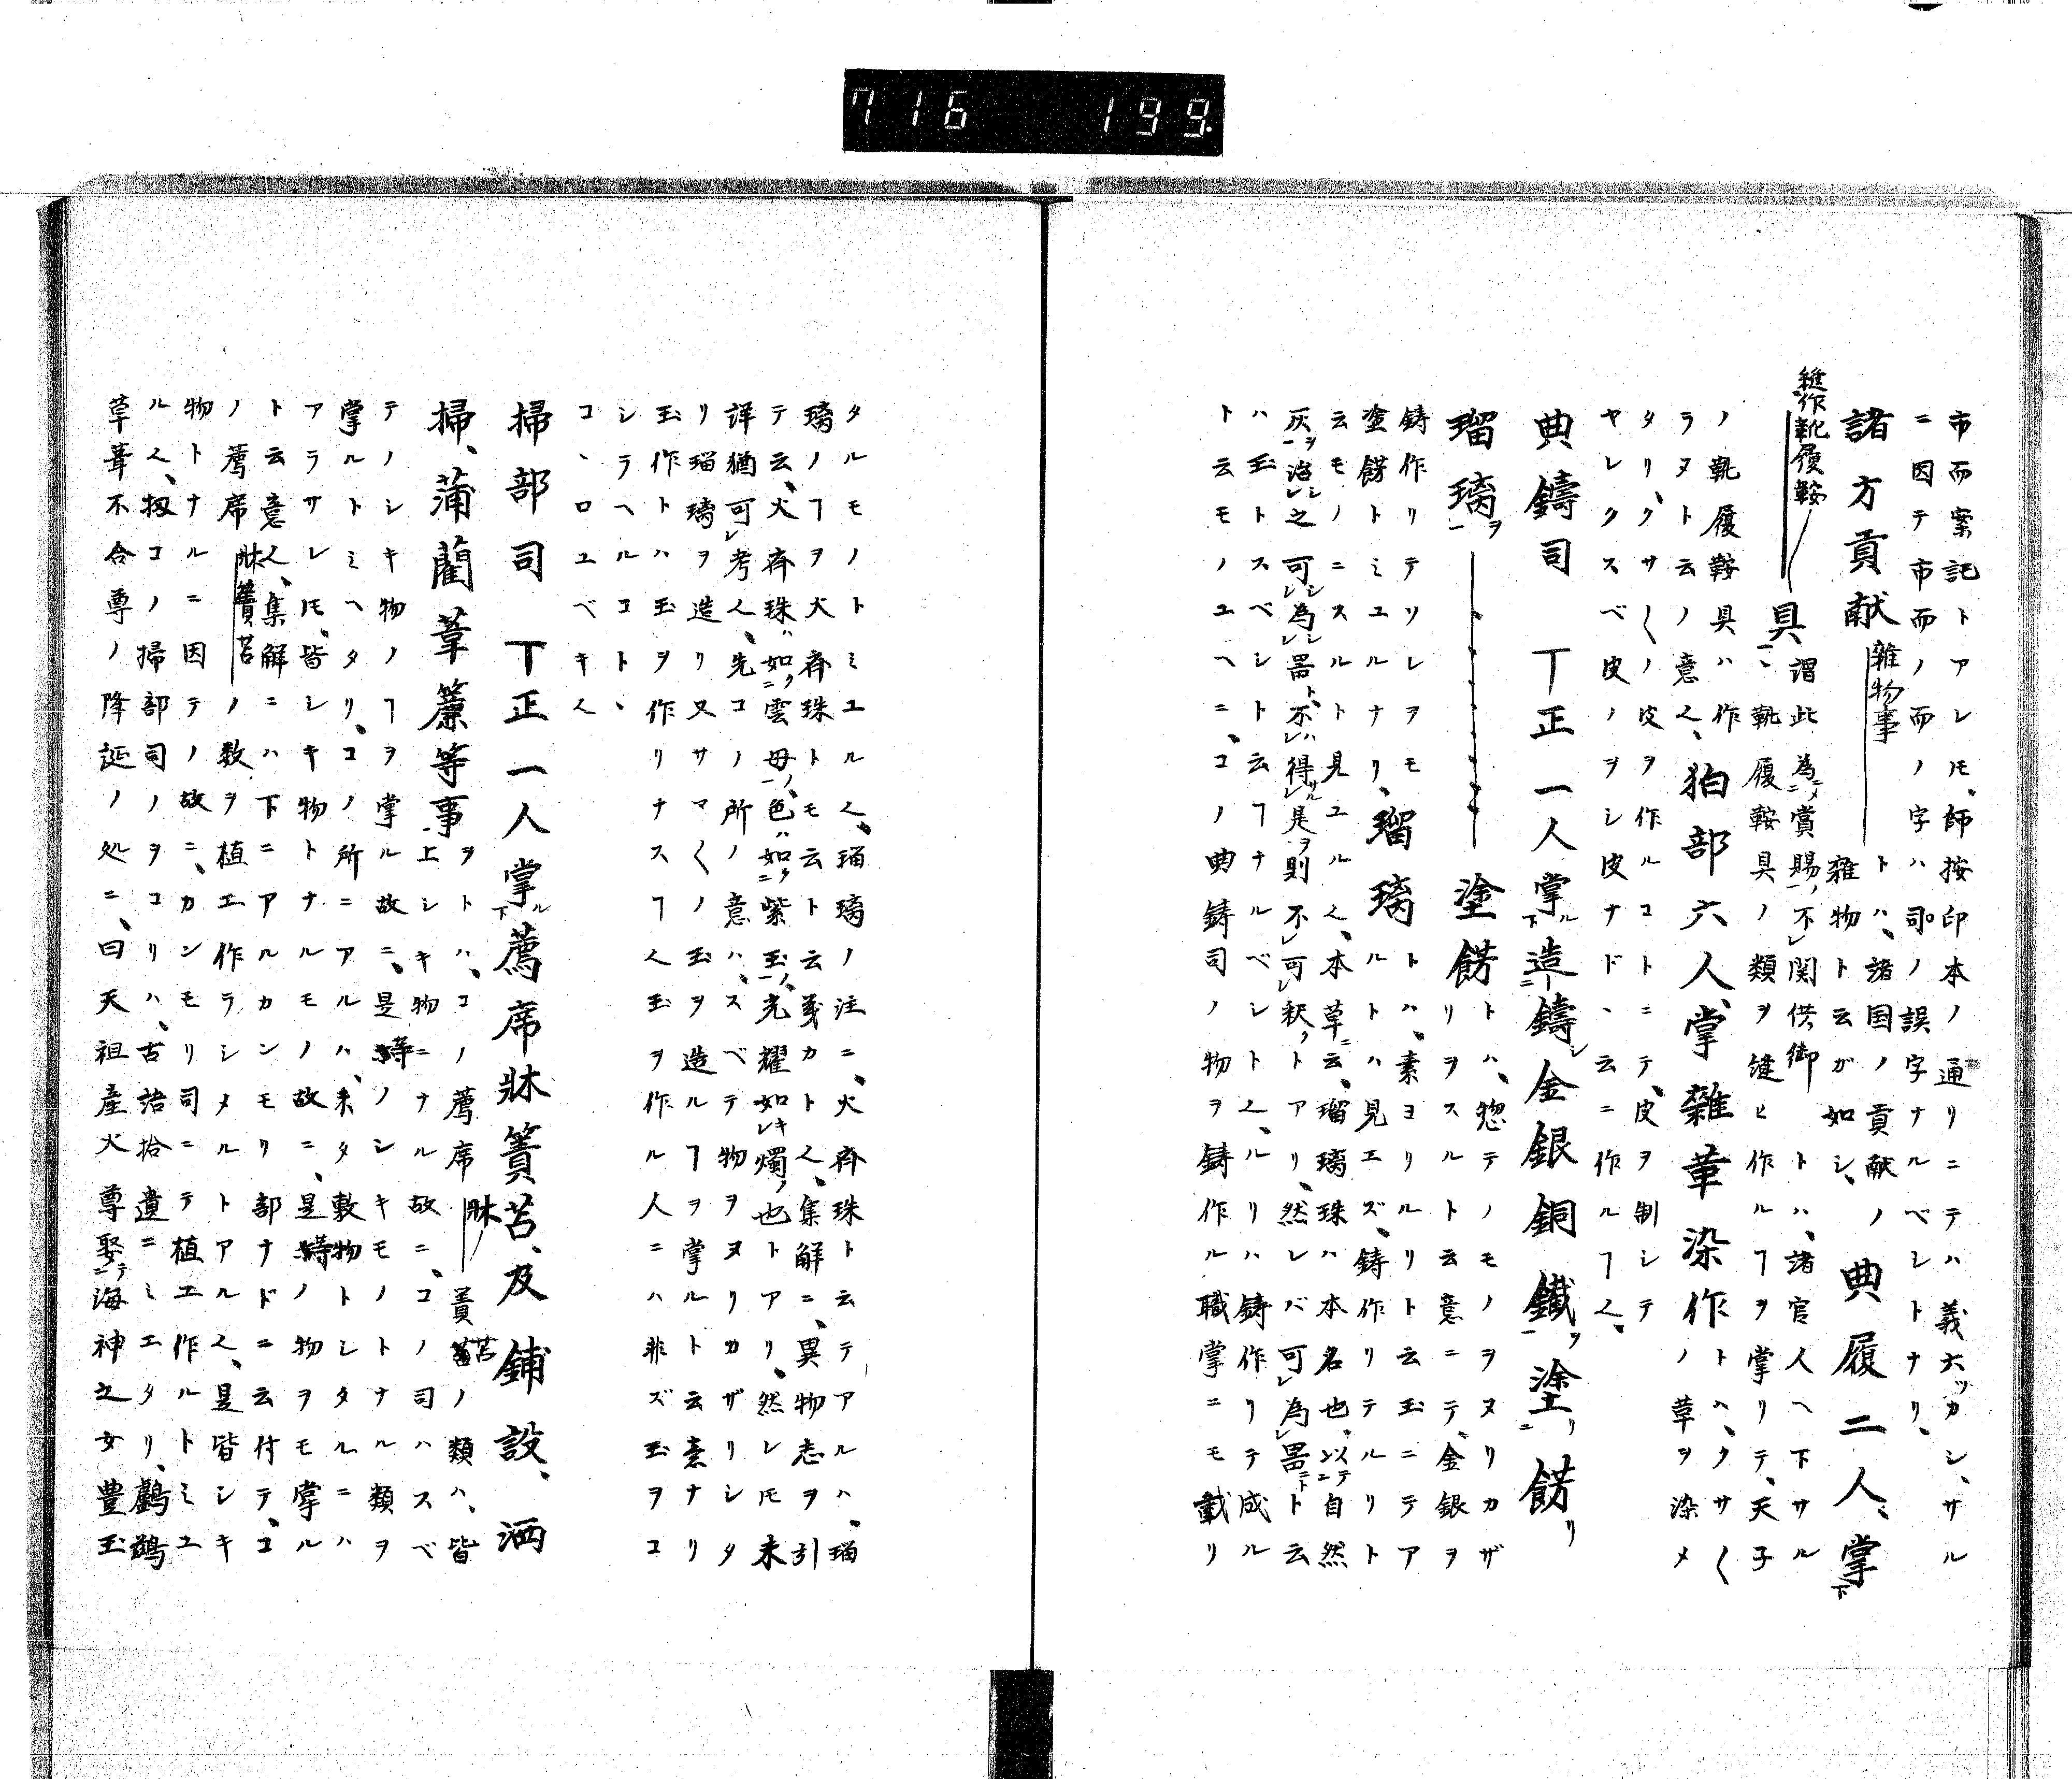 716 199.
市而案記トアレ𪜈、師按印本ノ通リニテハ義大ツカシ、サル
ニ因テ市而ノ而ノ字ハ司ノ誤字ナルベシトナリ、
諸方貢献雑物事 トハ、諸国ノ貢献ノ
雑物ト云ガ如シ、典履二人、掌下
縫作靴履鞍具、謂此為ニメ賞賜ノ一不レ関供御トハ、諸官人ヘ下サル
靴履鞍具ノ類ヲ縫ヒ作ルヿヲ掌リテ、天子
ノ靴履鞍具ハ作
ラヌト云ノ意也、狛部六人、掌雑革染作トハ、クサ〱
ノ草ヲ染メ
タリ、クサ〱ノ皮ヲ作ルコトニテ、皮ヲ制シテ
ヤレクスベ皮ノヲシ皮ナド、云ニ作ルヿ也、
典鑄司 丁正一人掌ル下造ニ鑄シ金銀銅鐵一ヲ塗ニリ餝リ
瑠璃一ヲ 塗餝トハ、惣テノモノヲヌリカザ
リヲスルト云意ニテ、金銀ヲ
鋳作リテソレヲモ
塗餝トミユルナリ、瑠璃トハ、素ヨリルリト云玉ニテア
ルトハ見エズ、鋳作リテルリト
云モノニスルト見ユル也、本草ニ云、瑠璃珠ハ本名也、以テニ自然
灰一ヲ治レシ之可レシ為レ噐ト、不レハ得レル是ヲ則不レ可レ釈ノトアリ、然レバ可レ為レ噐ニトト云
ハ玉トスベシト云ヿナルベシト也、ルリハ鋳作リテ成ル
ト云モノユヘニ、コノ典鋳司ノ物ヲ鋳作ル職掌ニモ載リ
タルモノトミユル也、瑠璃ノ注ニ、火齊珠ト云テアルハ、瑠
璃ノヿヲ火齊珠トモ云ト云義カト也、集解ニ、異物志ヲ引
テ云、火齊珠ハ如ニク雲母一ノ、色ハ如ニク紫玉一ノ、光耀如レキ燭ノ也トアリ、然レ𪜈未
詳猶可レ考也、先コノ所ノ意ハ、スベテ物ヲヌリカザリシタ
リ瑠璃ヲ造リ又サマ〱ノ玉ヲ造ルヿヲ掌ルト云意ナリ
玉作トハ玉ヲ作リナスヿ也玉ヲ作ル人ニハ非ズ玉ヲコ
シラヘルコト、
コヽロユベキ也
掃部司 丁正一人掌ル下薦席牀簀苫、及鋪設、洒
掃、蒲藺葦簾等事上ヲトハ、コノ薦席牀簀苫ノ類ハ、皆
シキ物ニナル故ニ、コノ司ハスベ
テノシキ物ノヿヲ掌ル故ニ、是等ノシキモノトナル類ヲ
掌ルトミヘタリ、コノ所ニアルハ、未タ敷物トシタルニハ
アラサレ𪜈、皆シキ物トナルモノノ故ニ、是等ノ物ヲモ掌ル
ト云意也、集解ニハ下ニアルカンモリ部ナドニ云付テ、コ
ノ薦席牀簀苫ノ数ヲ植エ作ラシメルトアル也、是皆シキ
物トナルニ因テノ故ニ、カンモリ司ニテ植エ作ルトミユ
ル也、扨コノ掃部司ノヲコリハ、古語拾遺ニミエタリ、鸕鷀
草葺不合尊ノ降誕ノ処ニ、曰天祖産火尊娶ニテ海神之女豊玉